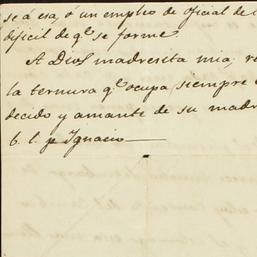 se á esa, ó un empleo de oficial de
dificil de qᵉ se forme.
A Dios madresita mia, r
la ternura qᵉ ocupa siempre
decido y amante de su madr
b. l. p. Ignacio